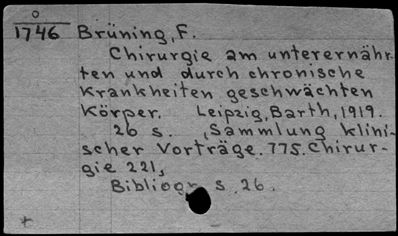 0
1746 Brüning, F.
Chirurgie am unterernähr-
ten und durch chronische
Krankheiten geschwächten
Körper. Leipzig, Barth, 1919.
26 s. (Sammlung klini-
scher Vorträge. 775. Chirur-
gie 221)
Bibliogr. s. 26.
+